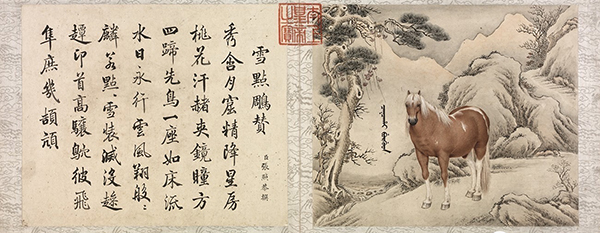 雪點鵰贊
臣張照恭撰
秀含月窟精降星房
桃花汗赭夾鏡瞳方
四蹄先鳥一座如床流
水日永行雲風翔般〻
麟若點〻雪裝滅沒趍
趠卬首高驤眡彼飛
隼庶幾頡頏